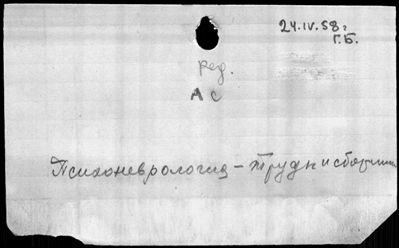 24.IV.58г
Г.Б.
ред.
А С
Психоневрология - труды и сборники